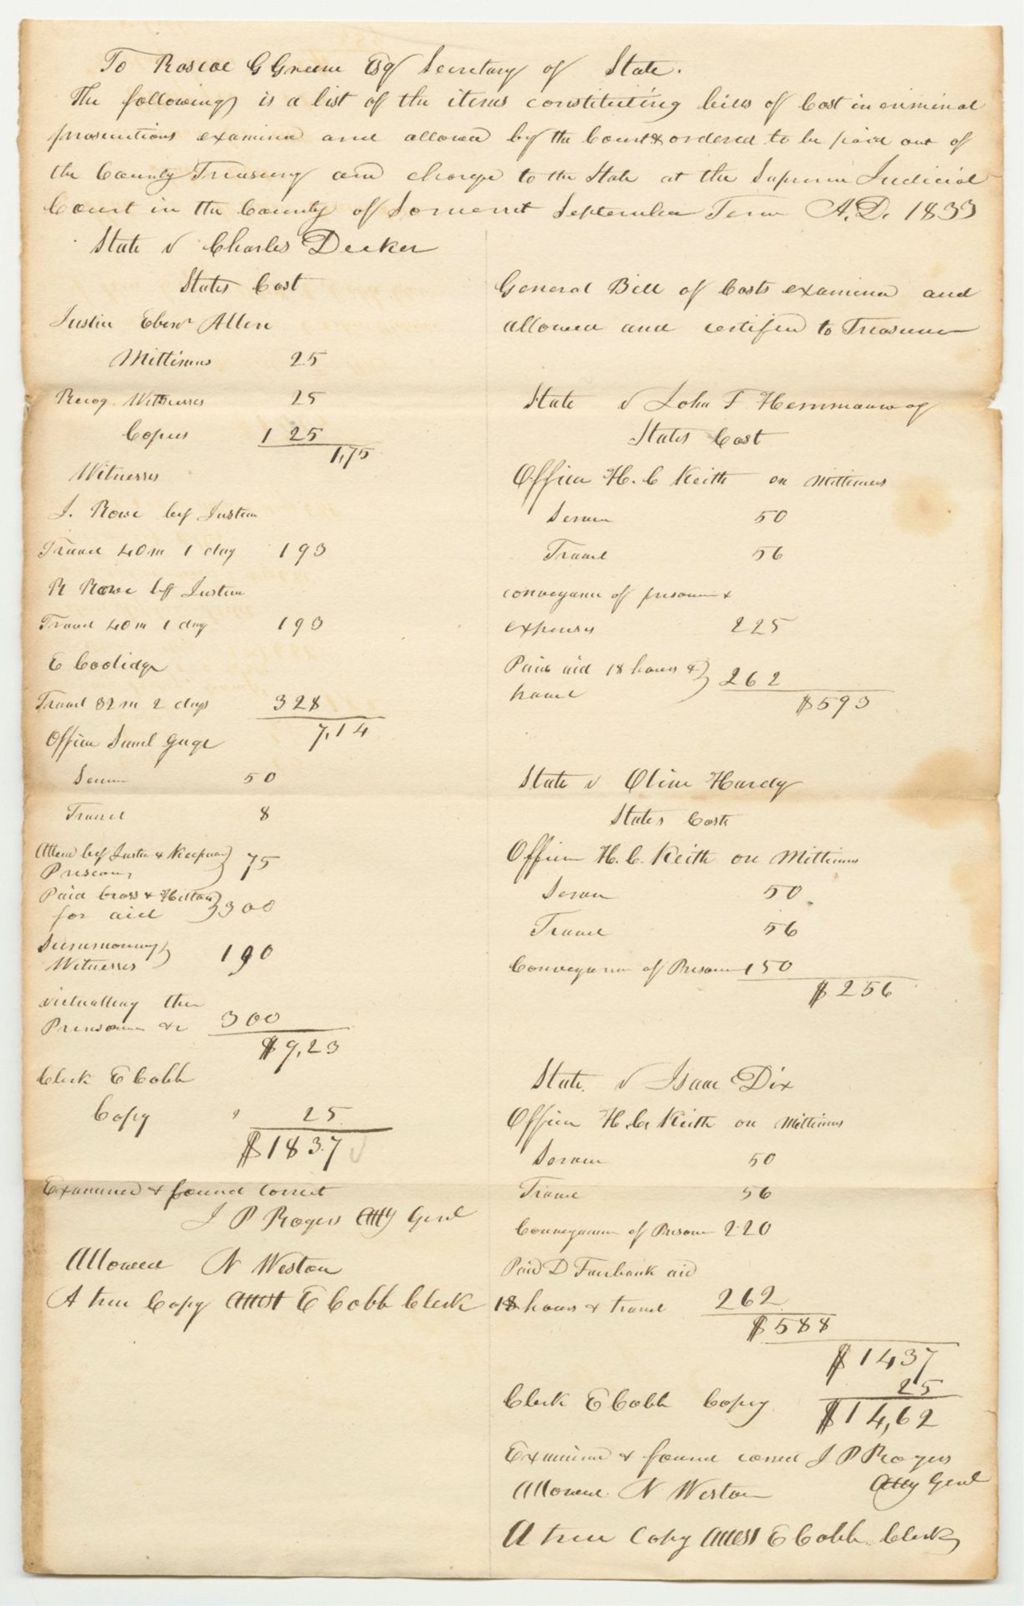 To Roscoe G Greene Esq Secretary of State.
The following is a list of the items constituting bills of Cost in criminal
prosecutions examined and allowed by the Court & ordered to be paid out of
the County Treasury and charge to the State at the Supreme Judicial
Court in the County of Somerset September Term A.D. 1833
State v Charles Decker
States Cost
Justice Ebenr Allen
Mittimus 25
Recog. Witnesses 25
Copies 1 25
1,75
Witnesses
J. Rowe bef Justice
Travel 40 m 1 day 193
R Rowe bef Justice
Travel 40 m 1 day 193
E Coolidge
Travel 32 m 2 days 328
7,14
Officer Saml Gage
Service 50
Travel 8
Attend bef Justice & Keeping Prisoner 75
Paid Cross & Hilton for aid 300
Summoning Witnesses 190
victualling the Prisoner &c 300
$9,23
Clerk E Cobb
Copy 25
$1837
Examined & found correct
J P Rogers Atty Genl
Allowed N Weston
A true Copy Attest E Cobb Clerk
General Bill of Costs examined and
allowed and certified to Treasurer
State v John T Hemmanway
States Cost
Officer H. C Keith on mittimus
Service 50
Travel 56
conveyance of prisoner &
expenses 225
Paid aid 18 hours &
travel 262
$593
State v Olive Hardy
States Costs
Officer H. C. Keith on Mittimus
Service 50
Travel 56
Conveyance of Prisoner 150
$256
State v Isaac Dix
Officer H. C. Keith on Mittimus
Service 50
Travel 56
Conveyance of Prisoner 220
Paid D Fairbank aid
18 hours & travel 262
$588
$1437
25
Clerk E Cobb Copy $14,62
Examined & found correct J P Rogers
Atty Genl
Allowed N Weston
A true Copy Attest E Cobb Clerk